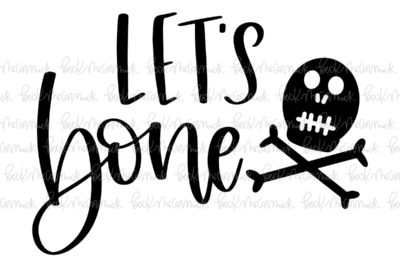 LET'S
bone